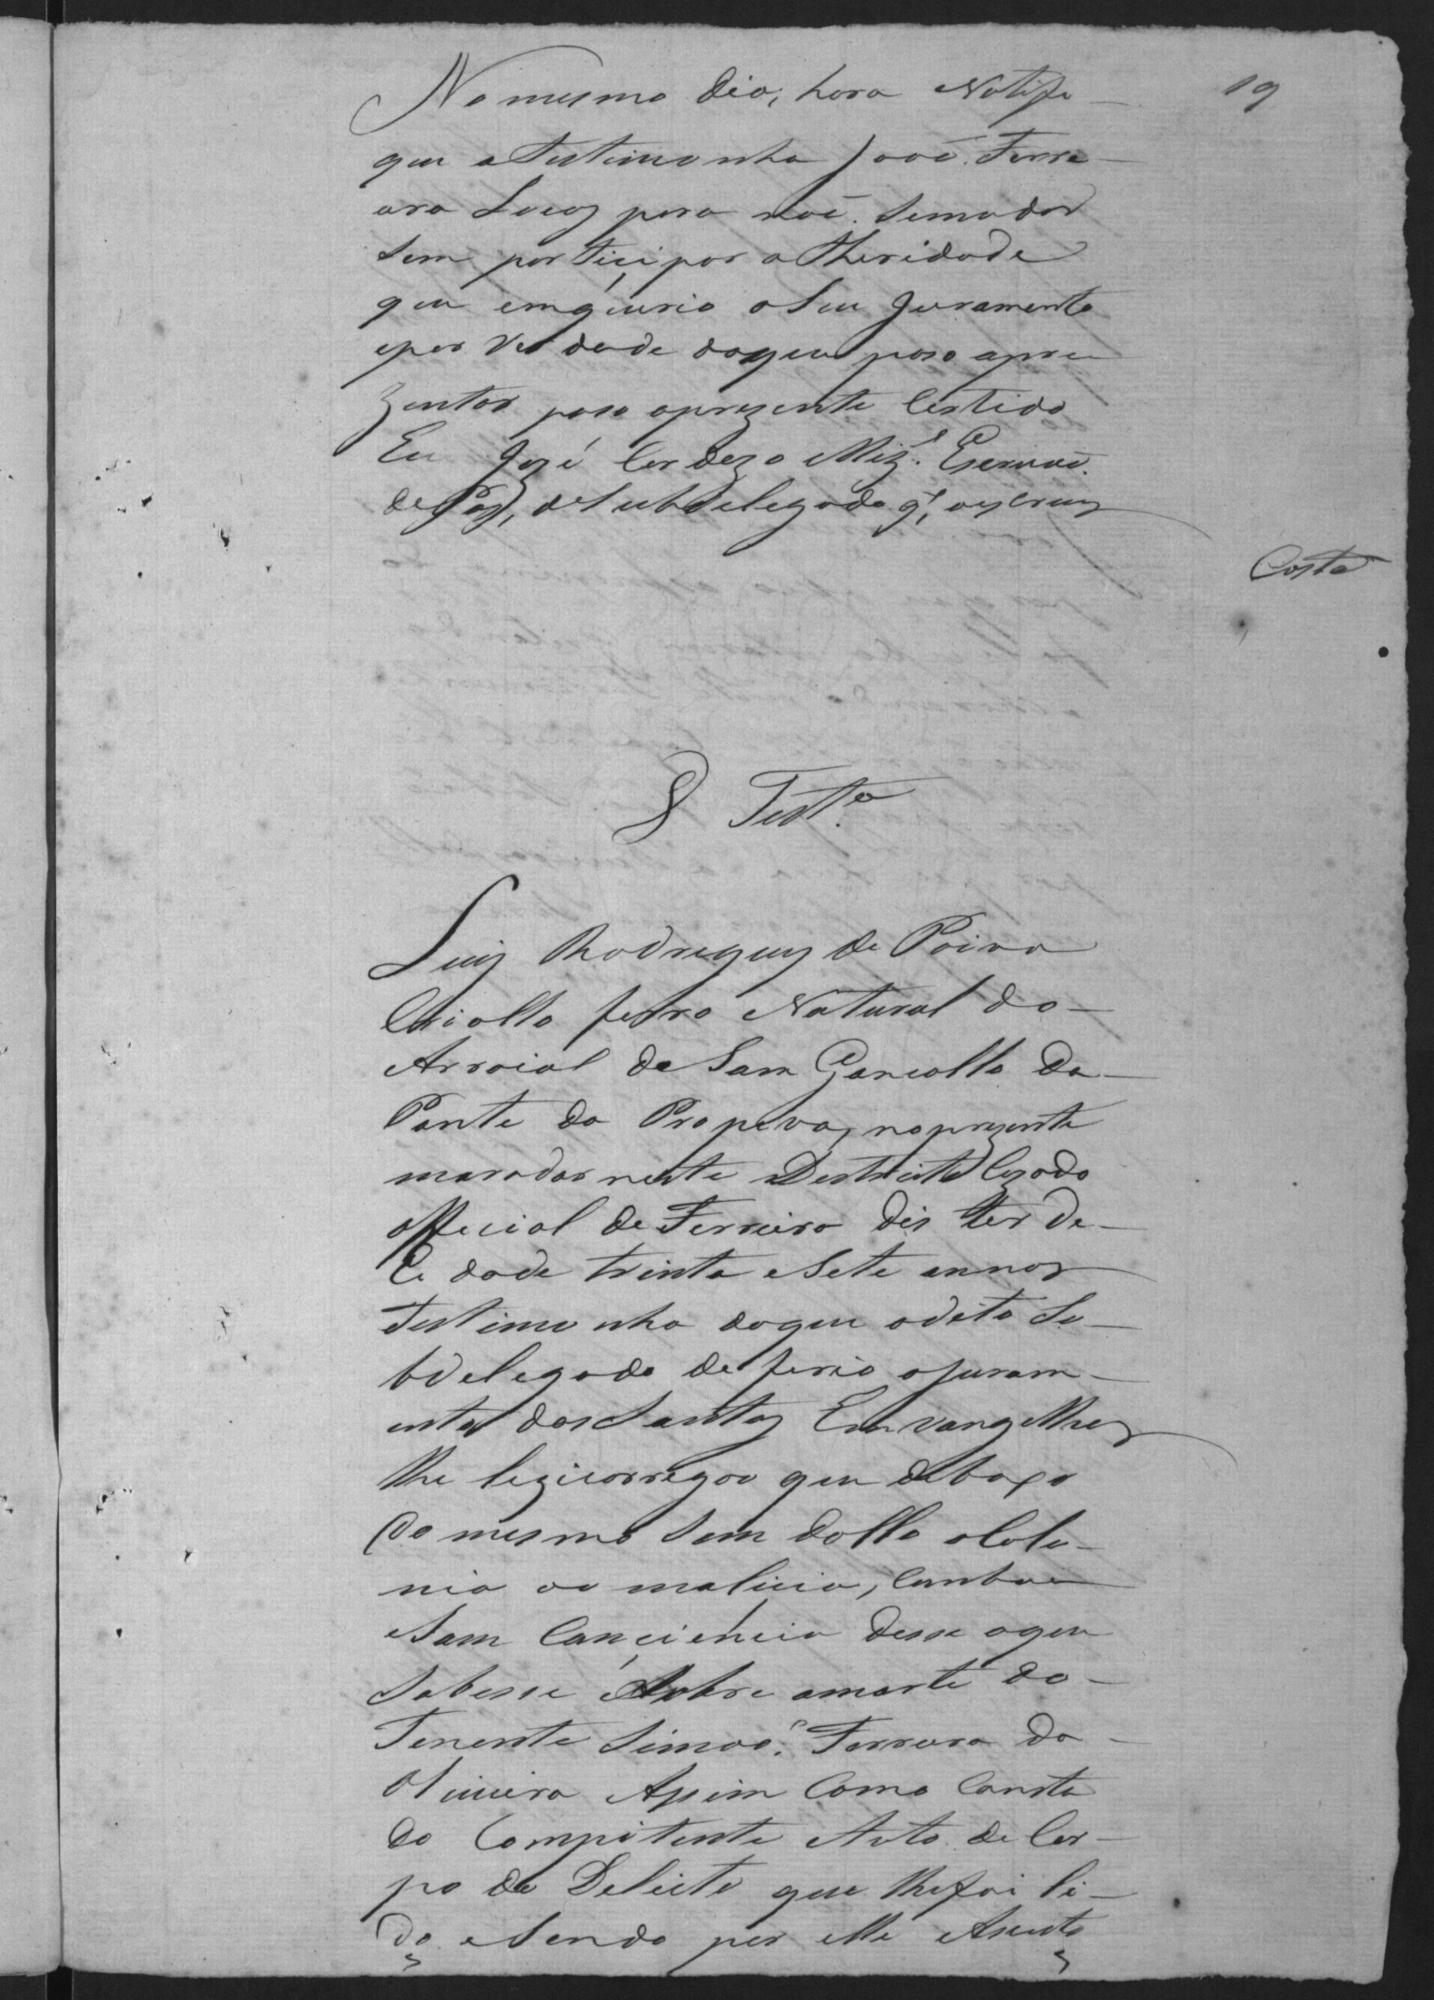 19
No mesmo dia, hora Notife
quei a Testimunha João Ferre
ara Lucas para não se mudar
sem partiçipar a Theridade
que emqueurio o seu Juramento
e por Verdade do que paso apre
zentar paso aprezente Certidão
Eu José Cardozo Miz. Escrivão
de Paz, de Subdelegado q. o escrevy
Costa
8 Test.ª
Luis Rodrigues de Paiva
Criollo forro Natural do
Arraial de Sam Goncallo da
Ponte da Propeva, no prezente
morador neste Destricto Cazado
official de Ferreiro dis ter de
Ei dade trinta e sete annos
Testimunha do que o dito Su
bdelegado de ferio o juram
ento dos Santos Em vangelhos
lhe lezicarregou que debaxo
do mesmo sem dollo o Colo
nia ou malicia, Com boa
e Sam Conçiençia desse o que
Sabesse e Sobre a morte do
Tenente Simão Ferreira da
Oliveira Assim Como Consta
do Compitente Auto de Cor
po de Delicto que lhe foi li
do e Sendo por elle Aseito